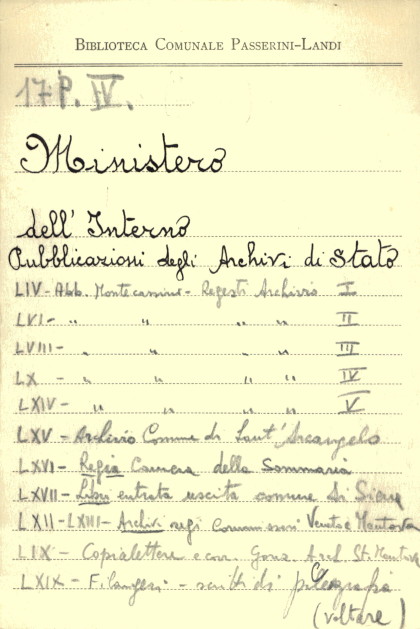 BIBLIOTECA COMUNALE PASSERINI-LANDI
17 P. IV.
Ministero
dell' Interno
Pubblicazioni degli Archivi di Stato
LIV - Abb. Montecassino - Regesti Archivio I
LVI - " " " " II
LVIII - " " " " III
LX - " " " " IV
LXIV - " " " " V
LXV - Archivio Comune di Sant' Arcangelo
LXVI - Regia Camera della Sommaria
LXVII - Libri entrata uscita comune di Siena
LXII - LXIII - Archivi regi Commissari Veneto e Mantova
LIX - Copialettere e corr. Gonz. Arch. St. Mantova
LXIX - Filangeri - scritti di paleografia
(voltare)